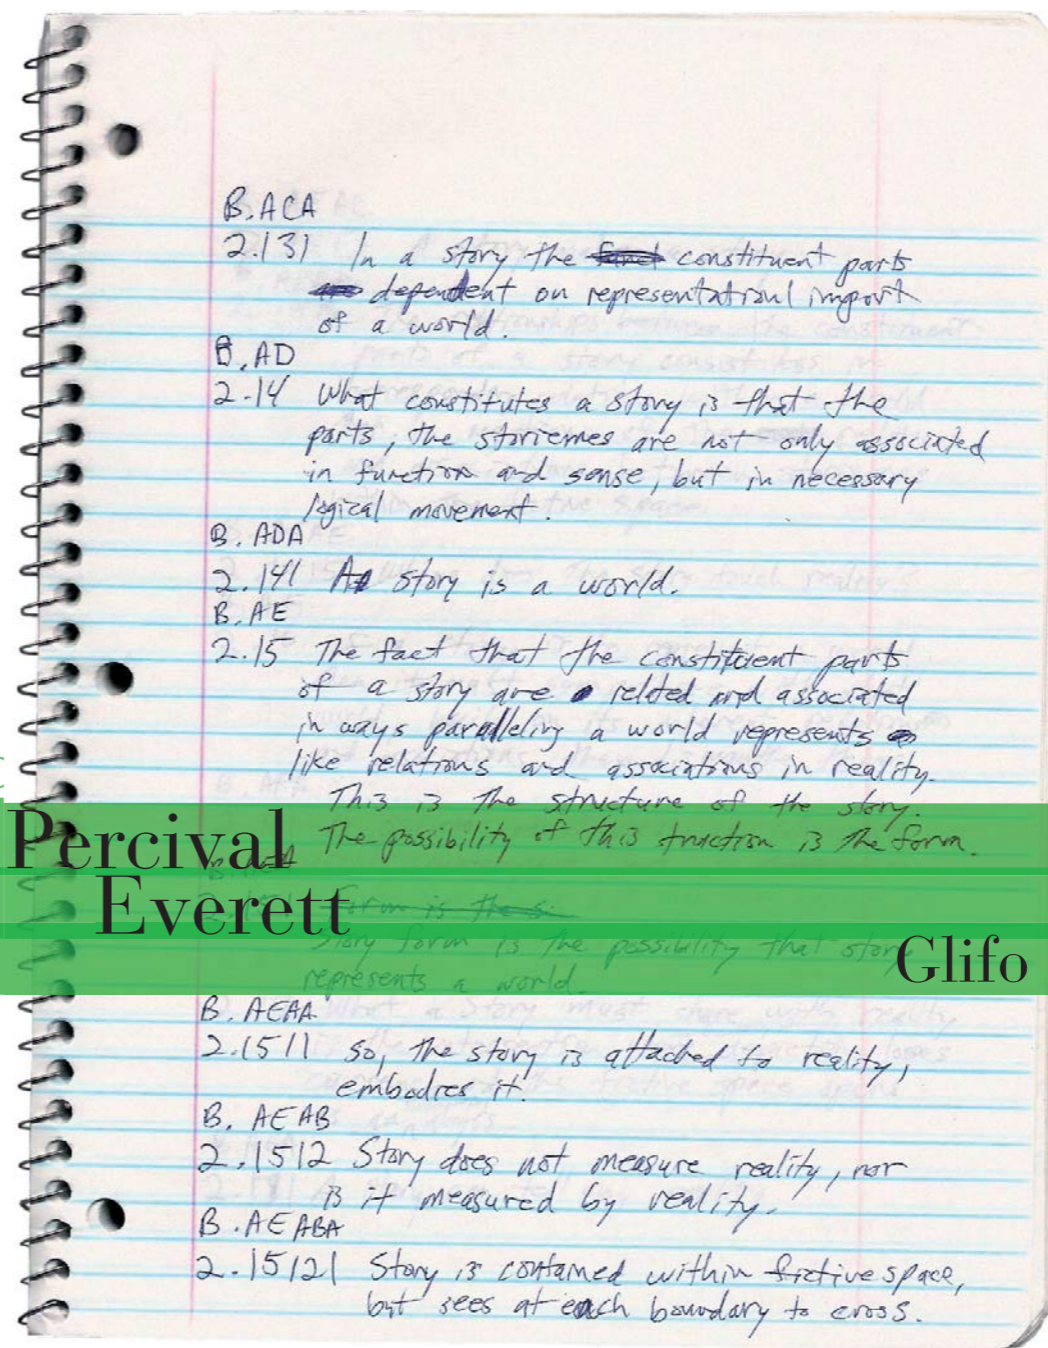 B.ACA
2.131 In a story the constituent parts
dependent on representational import
of a world.
B.AD
2.14 What constitutes a story is that the
parts, the storiemes are not only associated
in function and sense, but in necessary
logical movement.
B. ADA
2.141 A story is a world.
B. AE
2.15 The fact that the constituent parts
of a story are related and associated
in ways paralleling a world represents
like relations and associations in reality.
This is the structure of the story.
The possibility of this truction is the form.
Percival
B.AEA
Everett
Form is the s
Story form is the possibility that story
Glifo
represents a world.
B. AEAA
2.1511 So, the story is attached to reality,
embodies it.
B. AEAB
2.1512 Story does not measure reality, nor
is it measured by reality.
B. AEABA
2.15121 Story is contained within fictive space,
but sees at each boundary to cross.